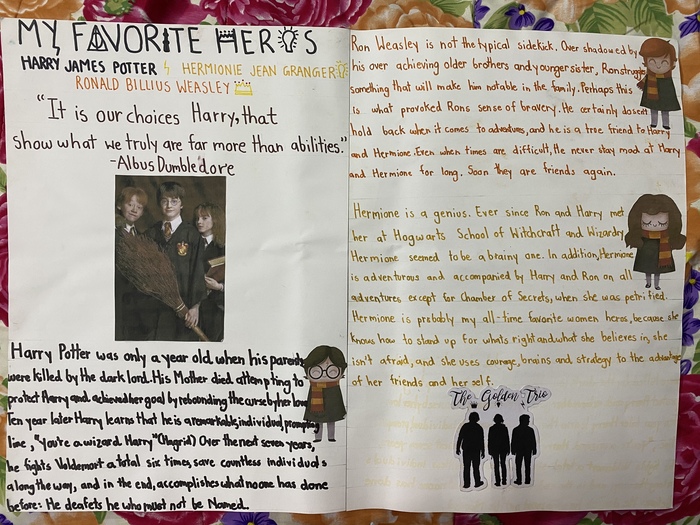 MY FAVORITE HEROS
HARRY JAMES POTTER HERMIONIE JEAN GRANGER
RONALD BILLIUS WEASLEY
"It is our choices Harry, that
show what we truly are far more than abilities."
-Albus Dumbledore
Harry Potter was only a year old when his parents
were killed by the dark lord. His Mother died attempting to
protect Harry and achieved her goal by rebounding the curse by her love
Ten year later Harry learns that he is a remarkable, individual, prompting
line, "You're a wizard Harry" (Hagrid) Over the next seven years,
he fights Voldemort a total six times, save countless individuals
along the way, and in the end, accomplishes what no one has done
before: He deafets he who must not be Named.
Ron Weasley is not the typical sidekick. Over shadowed by
his over achieving older brothers and younger sister, Ron struggle
something that will make him notable in the family. Perhaps this
is what provoked Rons sense of bravery. He certainly dosent
hold back when it comes to adventures, and he is a true friend to Harry
and Hermione. Even when times are difficult, He never stay mad at Harry
and Hermione for long. Soon they are friends again.
Hermione is a genius. Ever since Ron and Harry met
her at Hogwarts School of Witchcraft and Wizardry
Hermione seemed to be a brainy one. In addition, Hermione
is adventurous and accompanied by Harry and Ron on all
adventures except for Chamber of Secrets, when she was petrified.
Hermione is probably my all-time favorite women heros, because she
knows how to stand up for whats right and what she believes in, she
isn't afraid, and she uses courage, brains and strategy to the advantage
of her friends and her self.
The Golden Trio